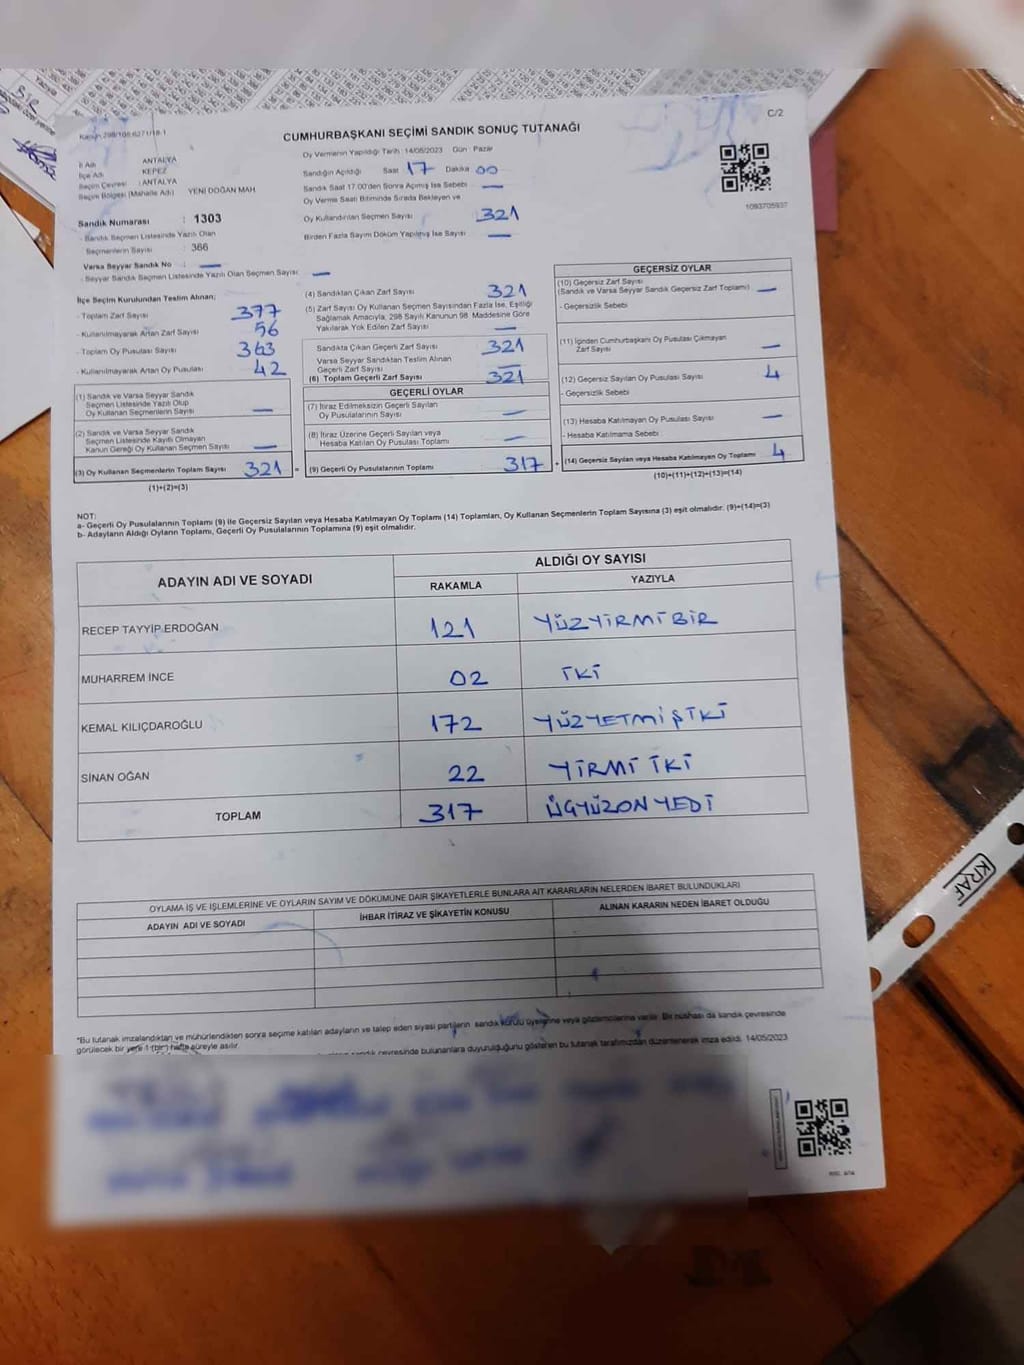 C/2
Kanun 298/105 6271/18-1
CUMHURBAŞKANI SEÇİMİ SANDIK SONUÇ TUTANAĞI
İl Adı ANTALYA
İlçe Adı KEPEZ
Seçim Çevresi : ANTALYA
Seçim Bölgesi (Mahalle Adı) YENİ DOĞAN MAH.
Sandık Numarası : 1303
- Sandık Seçmen Listesinde Yazılı Olan
Seçmenlerin Sayısı : 366
Varsa Seyyar Sandık No : —
- Seyyar Sandık Seçmen Listesinde Yazılı Olan Seçmen Sayısı —
Oy Vermenin Yapıldığı Tarih : 14/05/2023 Gün : Pazar
Sandığın Açıldığı Saat 17 Dakika 00
Sandık Saat 17.00'den Sonra Açılmış İse Sebebi —
Oy Verme Saati Bitiminde Sırada Bekleyen ve
Oy Kullandırılan Seçmen Sayısı 321
Birden Fazla Sayım Döküm Yapılmış İse Sayısı —
1093705937
İlçe Seçim Kurulundan Teslim Alınan;
- Toplam Zarf Sayısı 377
- Kullanılmayarak Artan Zarf Sayısı 56
- Toplam Oy Pusulası Sayısı 363
- Kullanılmayarak Artan Oy Pusulası 42
(1) Sandık ve Varsa Seyyar Sandık
Seçmen Listesinde Yazılı Olup
Oy Kullanan Seçmenlerin Sayısı —
(2) Sandık ve Varsa Seyyar Sandık
Seçmen Listesinde Kayıtlı Olmayan
Kanun Gereği Oy Kullanan Seçmen Sayısı —
(3) Oy Kullanan Seçmenlerin Toplam Sayısı 321 =
(1)+(2)=(3)
(4) Sandıktan Çıkan Zarf Sayısı 321
(5) Zarf Sayısı Oy Kullanan Seçmen Sayısından Fazla İse, Eşitliği
Sağlamak Amacıyla, 298 Sayılı Kanunun 98. Maddesine Göre
Yakılarak Yok Edilen Zarf Sayısı —
Sandıkta Çıkan Geçerli Zarf Sayısı 321
Varsa Seyyar Sandıktan Teslim Alınan
Geçerli Zarf Sayısı —
(6) Toplam Geçerli Zarf Sayısı 321
GEÇERLİ OYLAR
(7) İtiraz Edilmeksizin Geçerli Sayılan
Oy Pusulalarının Sayısı —
(8) İtiraz Üzerine Geçerli Sayılan veya
Hesaba Katılan Oy Pusulası Toplamı —
(9) Geçerli Oy Pusulalarının Toplamı 317 +
GEÇERSİZ OYLAR
(10) Geçersiz Zarf Sayısı
(Sandık ve Varsa Seyyar Sandık Geçersiz Zarf Toplamı) —
- Geçersizlik Sebebi
(11) İçinden Cumhurbaşkanı Oy Pusulası Çıkmayan
Zarf Sayısı —
(12) Geçersiz Sayılan Oy Pusulası Sayısı 4
- Geçersizlik Sebebi
(13) Hesaba Katılmayan Oy Pusulası Sayısı —
- Hesaba Katılmama Sebebi
(14) Geçersiz Sayılan veya Hesaba Katılmayan Oy Toplamı 4
(10)+(11)+(12)+(13)=(14)
NOT:
a- Geçerli Oy Pusulalarının Toplamı (9) ile Geçersiz Sayılan veya Hesaba Katılmayan Oy Toplamı (14) Toplamları, Oy Kullanan Seçmenlerin Toplam Sayısına (3) eşit olmalıdır. (9)+(14)=(3)
b- Adayların Aldığı Oyların Toplamı, Geçerli Oy Pusulalarının Toplamına (9) eşit olmalıdır.
ADAYIN ADI VE SOYADI ALDIĞI OY SAYISI
RAKAMLA YAZIYLA
RECEP TAYYİP ERDOĞAN 121 YÜZYİRMİBİR
MUHARREM İNCE 02 İKİ
KEMAL KILIÇDAROĞLU 172 YÜZYETMİŞİKİ
SİNAN OĞAN 22 YİRMİ İKİ
TOPLAM 317 ÜÇYÜZONYEDİ
OYLAMA İŞ VE İŞLEMLERİNE VE OYLARIN SAYIM VE DÖKÜMÜNE DAİR ŞİKAYETLERLE BUNLARA AİT KARARLARIN NELERDEN İBARET BULUNDUKLARI
ADAYIN ADI VE SOYADI İHBAR İTİRAZ VE ŞİKAYETİN KONUSU ALINAN KARARIN NEDEN İBARET OLDUĞU
*Bu tutanak imzalandıktan ve mühürlendikten sonra seçime katılan adayların ve talep eden siyasi partilerin sandık kurulu üyelerine veya gözlemcilerine verilir. Bir nüshası da sandık çevresinde
görülecek bir yere 1 (bir) hafta süreyle asılır.
sandık çevresinde bulunanlara duyurulduğunu gösteren bu tutanak tarafımızdan düzenlenerek imza edildi. 14/05/2023
KRAF